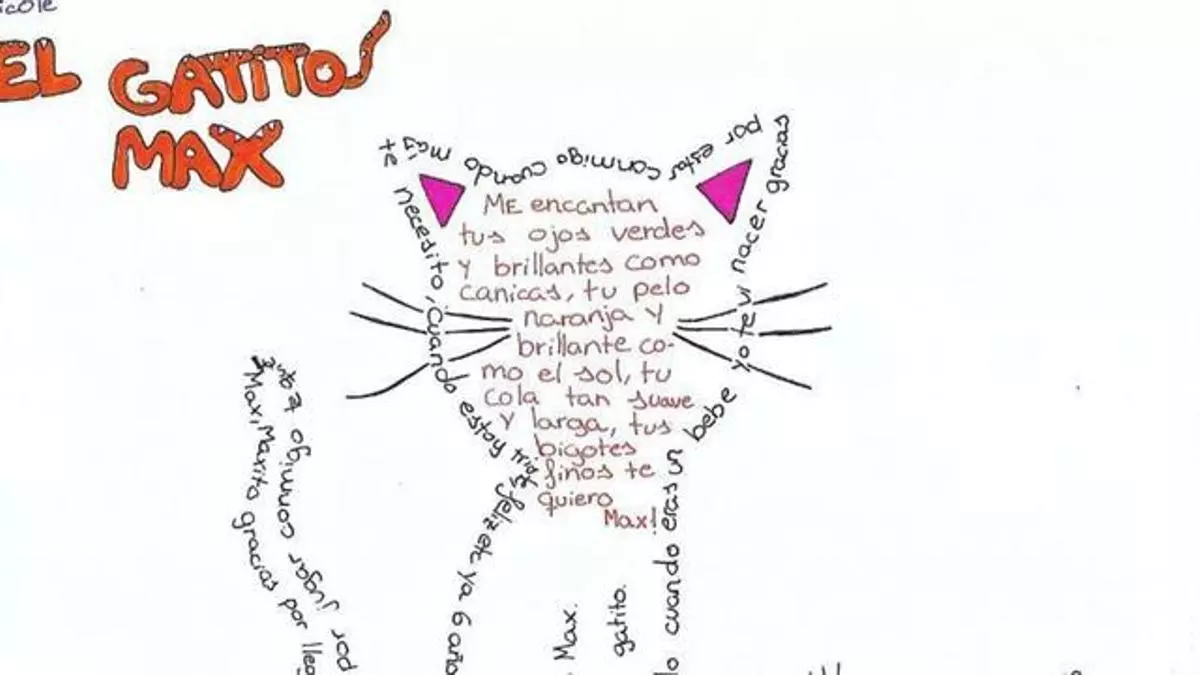 EL GATITO
MAX
ME encantan
tus ojos verdes
y brillantes como
canicas, tu pelo
naranja y
brillante co-
mo el sol, tu
cola tan suave
y larga, tus
bigotes
finos te
quiero
Max!
bebe yo te vi nacer gracias
por estar conmigo cuando mas
te necesito, cuando estoy triste
feliz etc ya 6
lo cuando eras un
Max.
gatito.
Max, Maxito gracias por
por jugar conmigo